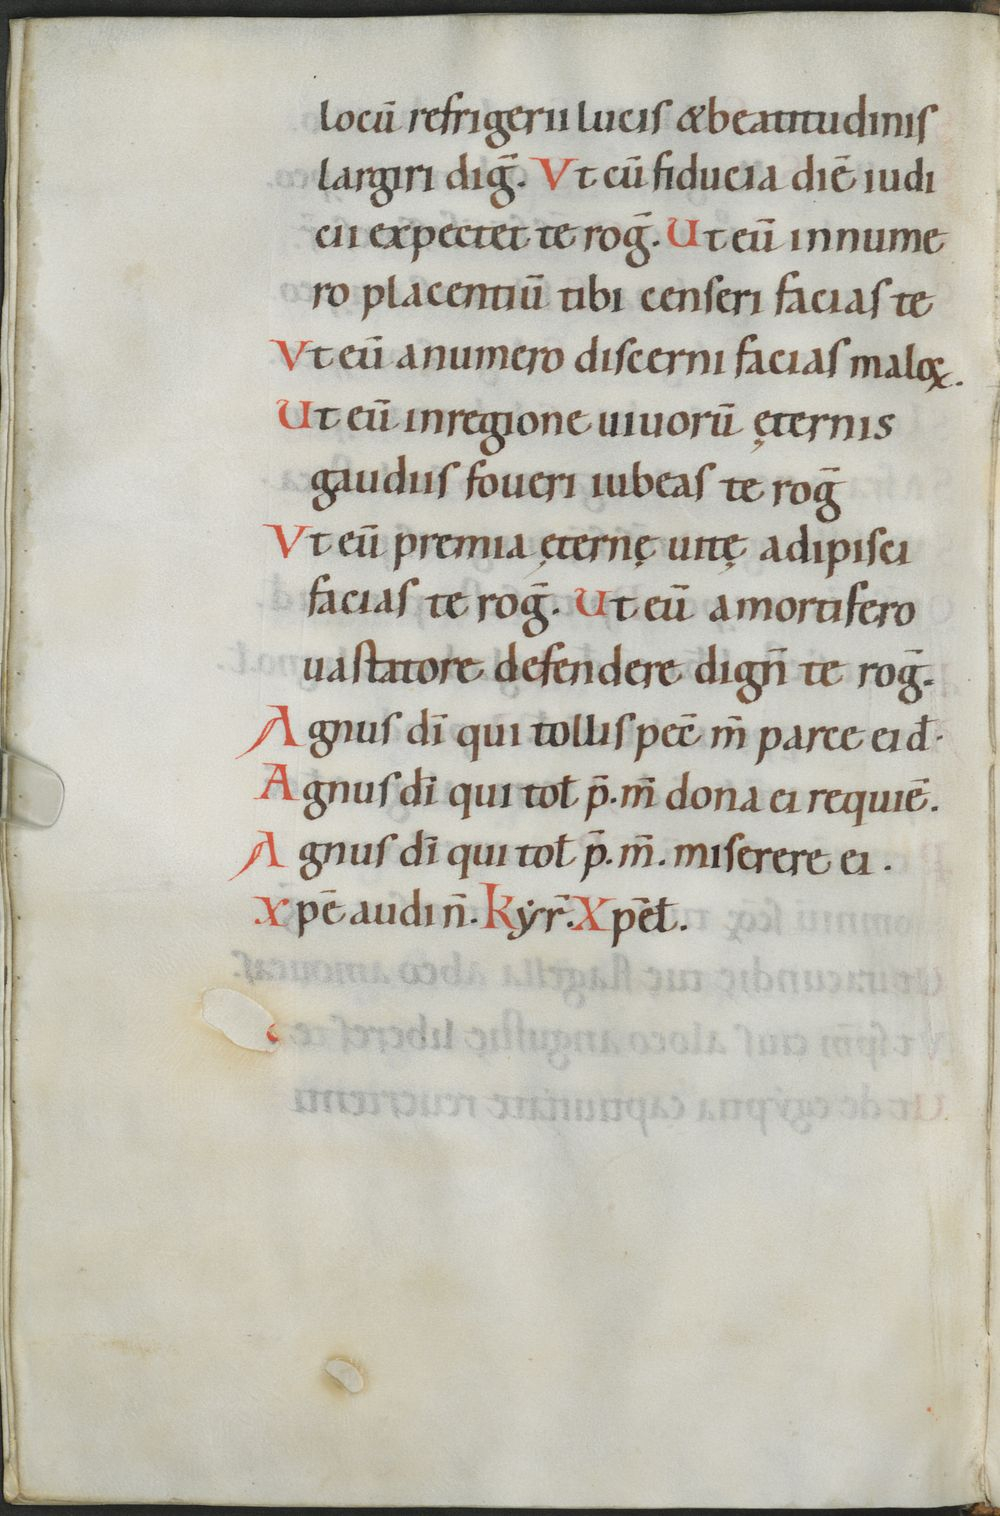 locū refrigerii lucis &beatitudinis
largiri dig̅. Vt cū fiducia diē iudi
cii expectet te rog̅. Ut eū innume
ro placentiū tibi censeri facias te
Vt eū anumero discerni facias maloꝝ.
Ut eū inregione uiuorū ęternis
gaudiis foueri iubeas te rog̅
Vt eū premia ęternę uitę adipisci
facias te rog̅. Ut eū amortifero
uastatore defendere dign̄ te rog̅.
Agnus dī qui tollis pec̄ m̄ parce ei đ.
Agnus dī qui toł p̄. m̄ dona ei requiē.
Agnus dī qui toł p̄. m̄. miserere ei.
Xpē audi n̄. Kẏr̄. Xpēł.